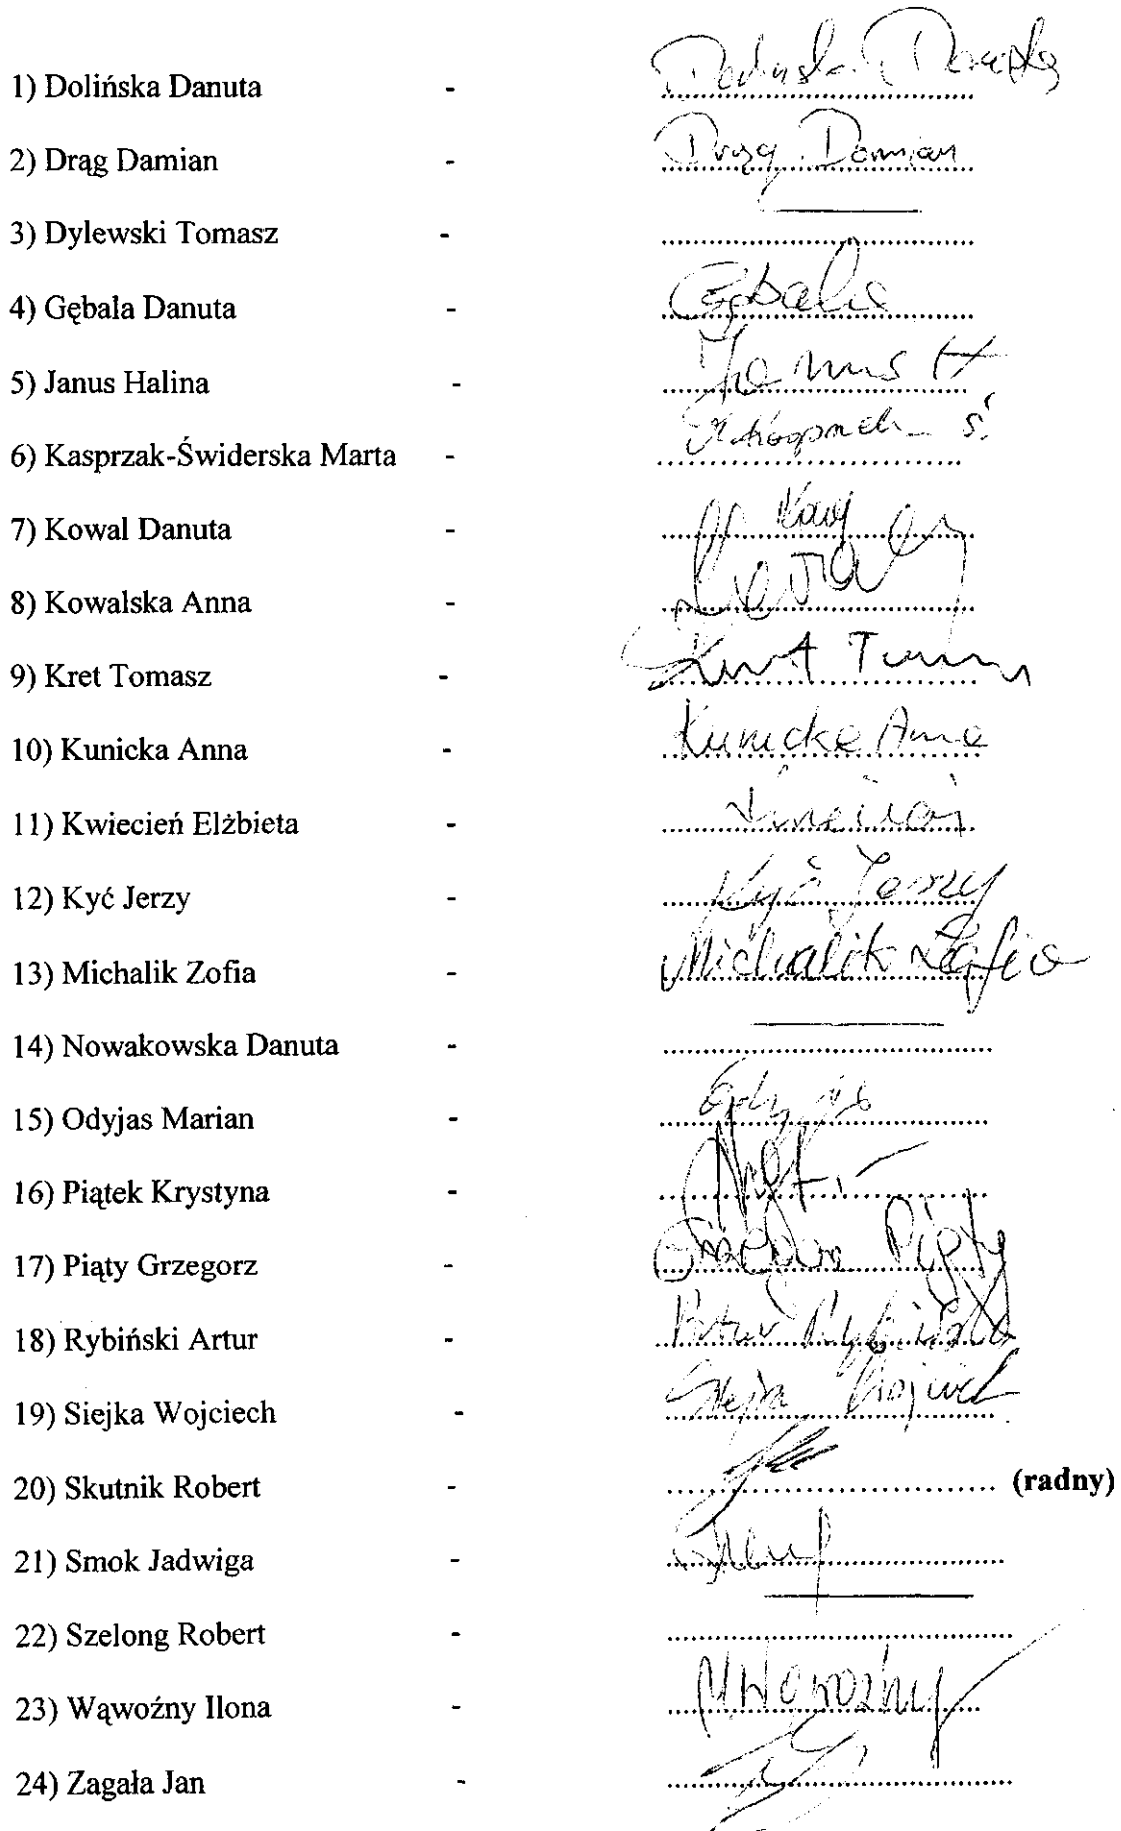 1) Dolińska Danuta - ....................................
2) Drąg Damian - Drąg Damian
3) Dylewski Tomasz - ....................................
4) Gębala Danuta - Gębala
5) Janus Halina - Janus H
6) Kasprzak-Świderska Marta - ....................................
7) Kowal Danuta - ....................................
8) Kowalska Anna - ....................................
9) Kret Tomasz - ....................................
10) Kunicka Anna - Kunicka Anna
11) Kwiecień Elżbieta - ....................................
12) Kyć Jerzy - Kyć Jerzy
13) Michalik Zofia - Michalik Zofia
14) Nowakowska Danuta - ....................................
15) Odyjas Marian - ....................................
16) Piątek Krystyna - ....................................
17) Piąty Grzegorz - Grzegorz Piąty
18) Rybiński Artur - Artur Rybiński
19) Siejka Wojciech - Siejka Wojciech
20) Skutnik Robert - .................................... (radny)
21) Smok Jadwiga - ....................................
22) Szelong Robert - ....................................
23) Wąwoźny Ilona - ....................................
24) Zagała Jan - ....................................